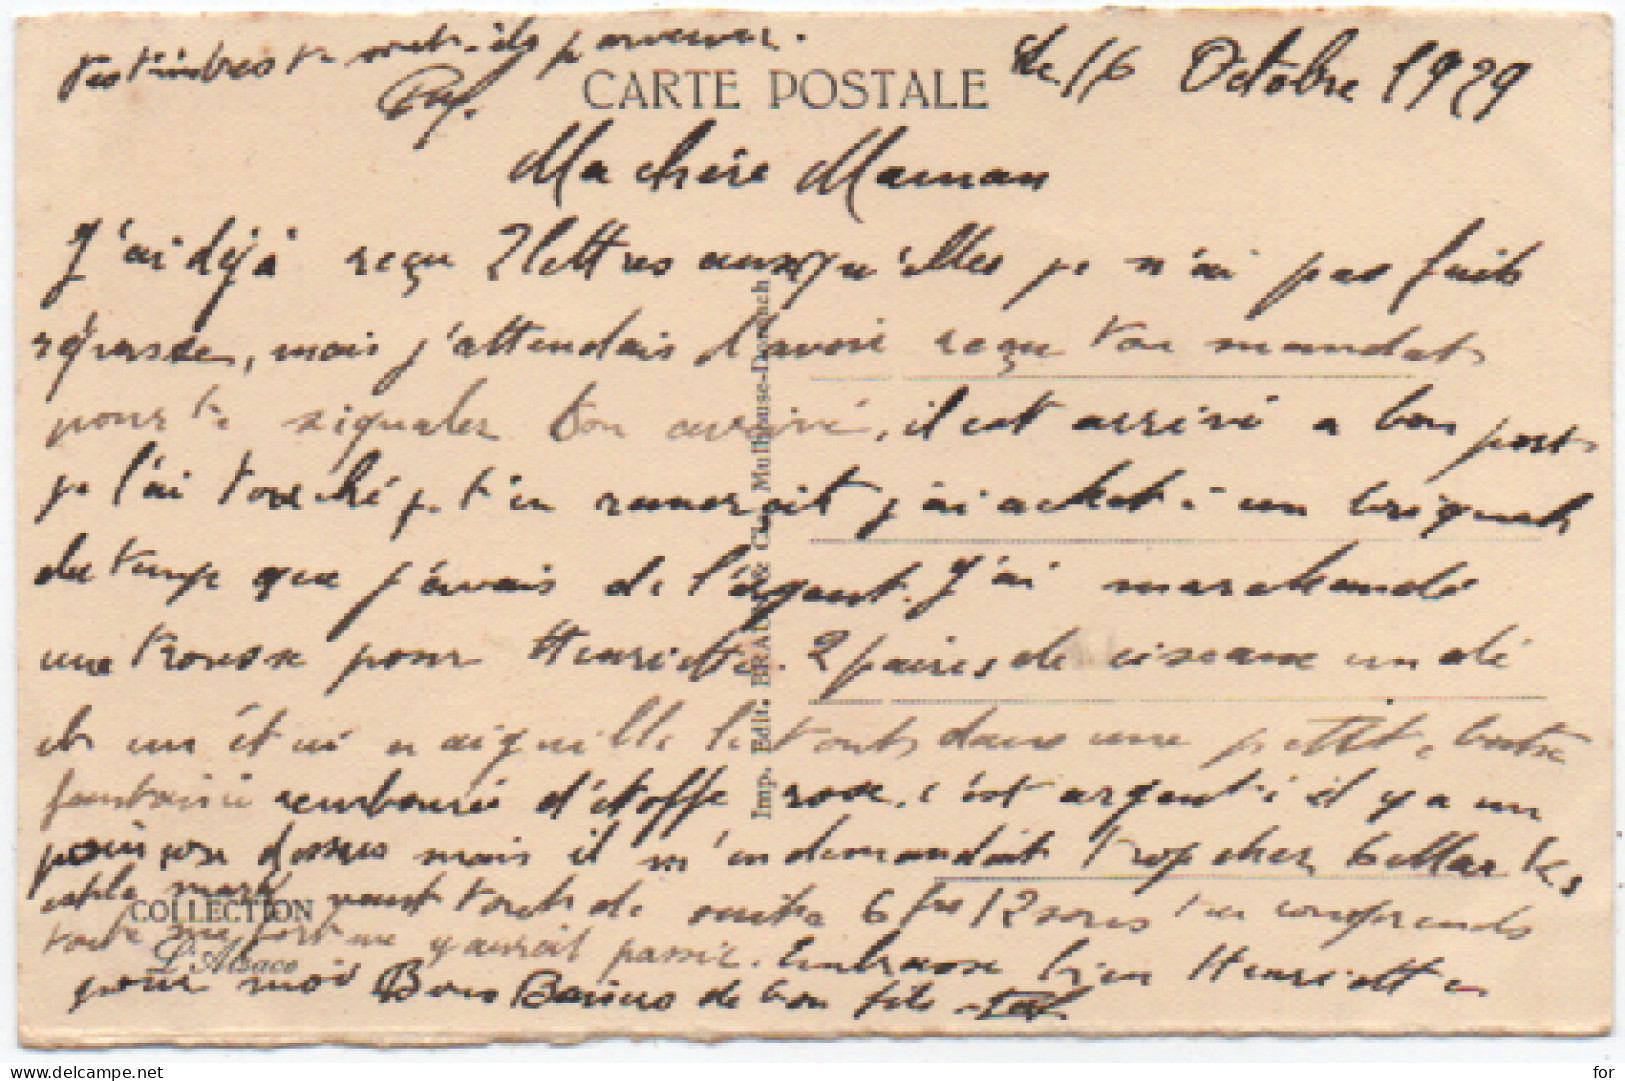 tes timbres te sont-ils parvenus.
CARTE POSTALE
Le 16 Octobre 1929
Ma chère Maman
J'ai déjà reçu 2 lettres auxqu'elles je n'ai pas faits
réponse, mais j'attendais d'avoir reçu ton mandat
pour te signaler son arrivé, il est arrivé a bon port
je l'ai touché je t'en remercit j'ai achet é un briquet
du temps que j'avais de l'argent. J'ai marchandé
une trousse pour Henriette. 2 paires de ciseaux un dé
et un étui a aiguille le touts dans une petite boite
fantaisie rembourré d'étoffe rose. c'est argenté il y a un
poinçon dessus mais il m'en demandait trop cher 6 Marks
et le mark vaut tout de suite 6 frs 12 sous tu comprends
toute ma fortune y aurait passé. Embrasse bien Henriette
pour moi Bons Baisers de ton fils
Imp. Edit. BRAUN & Cie, Mulhouse-Dornach
COLLECTION
L'Alsace
delcampe.net
for